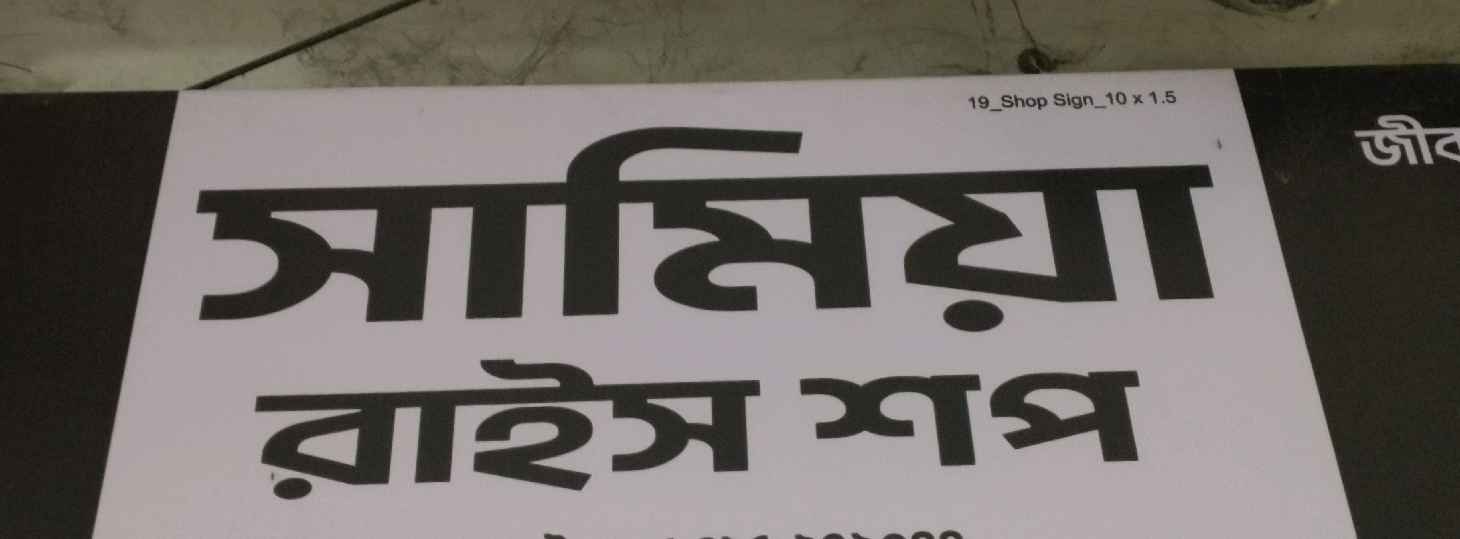 19_Shop Sign_10 x 1.5
সামিয়া
রাইস শপ